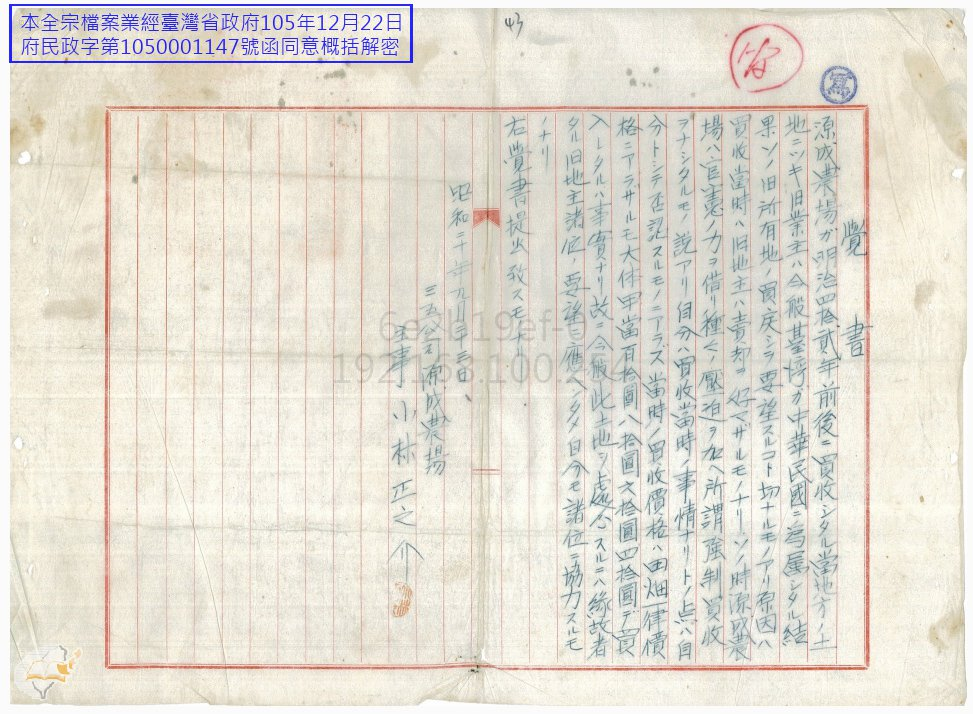 本全宗檔案業經臺灣省政府105年12月22日
府民政字第1050001147號函同意概括解密
43
覺書
源成農場ガ明治四拾貳年前後ニ買收シタル當地方ノ土
地ニツキ旧業主ハ今般臺灣ガ中華民國ニ歸屬シタル結
果ソノ旧所有地ノ買戾シヲ要望スルコト切ナルモノアリ原因ハ
買收當時ハ旧地主ハ賣却ヲ好マザルモノナリ ソノ時源成農
場ハ官憲ノ力ヲ借リ種々ノ壓迫ヲ加ヘ所謂強制買收
ヲナシタルモノノ說アリ自分ハ買收當時ノ事情ナリトノ点ハ自
分トシテ否認スルモノニアラズ當時ノ買收價格ハ田畑一律價
格ニアラザルモ大体甲當百拾圓八拾圓六拾圓四拾圓デ買
入レタルハ事實ナリ故ニ今般此土地ヲ處分スルニハ緣故者
タル旧地主諸氏ノ要望ニ應ヘンタメ自分モ諸位ニ協力スルモ
ノナリ
右覺書提出致スモノナリ
昭和二十年九月二十三日
三五公司源成農場
主事 小林正之介